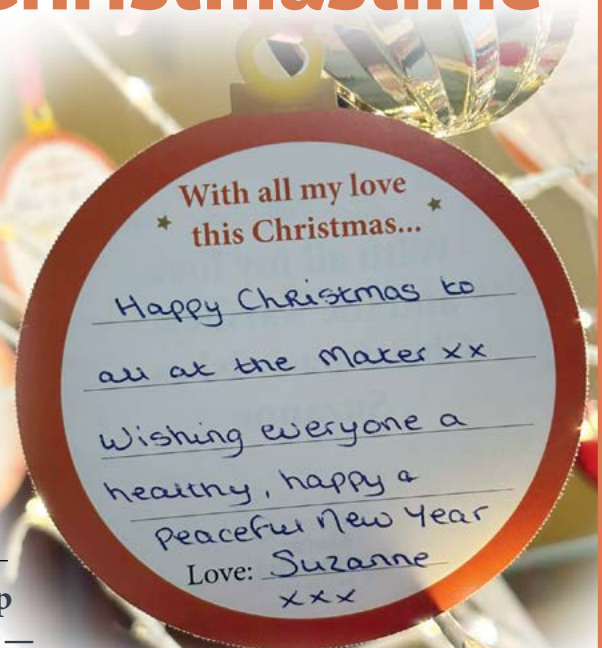 christmastime
With all my love
this Christmas...
Happy Christmas to
all at the Mater xx
Wishing everyone a
healthy, happy &
peaceful New Year
Love: Suzanne
xxx
p